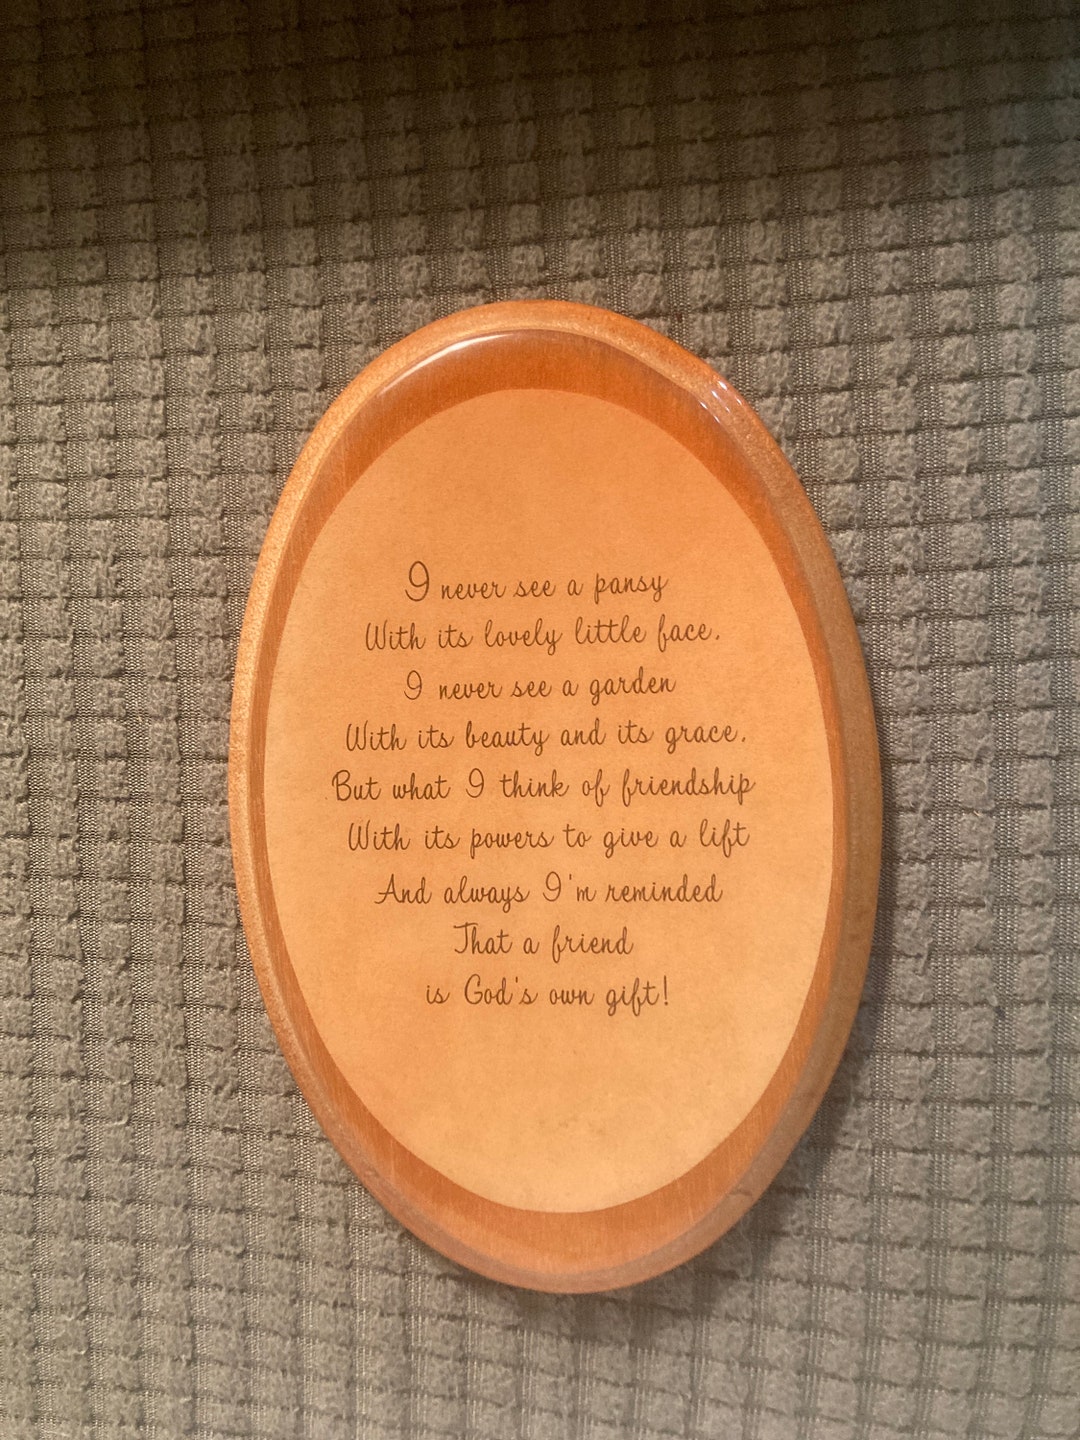 I never see a pansy
With its lovely little face.
I never see a garden
With its beauty and its grace.
But what I think of friendship
With its powers to give a lift
And always I'm reminded
That a friend
is God's own gift!